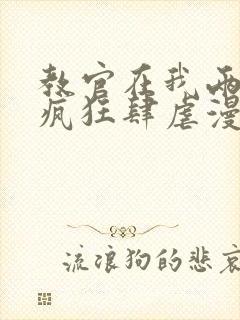 教官在我两
疯狂肆虐漫
流浪狗的悲哀